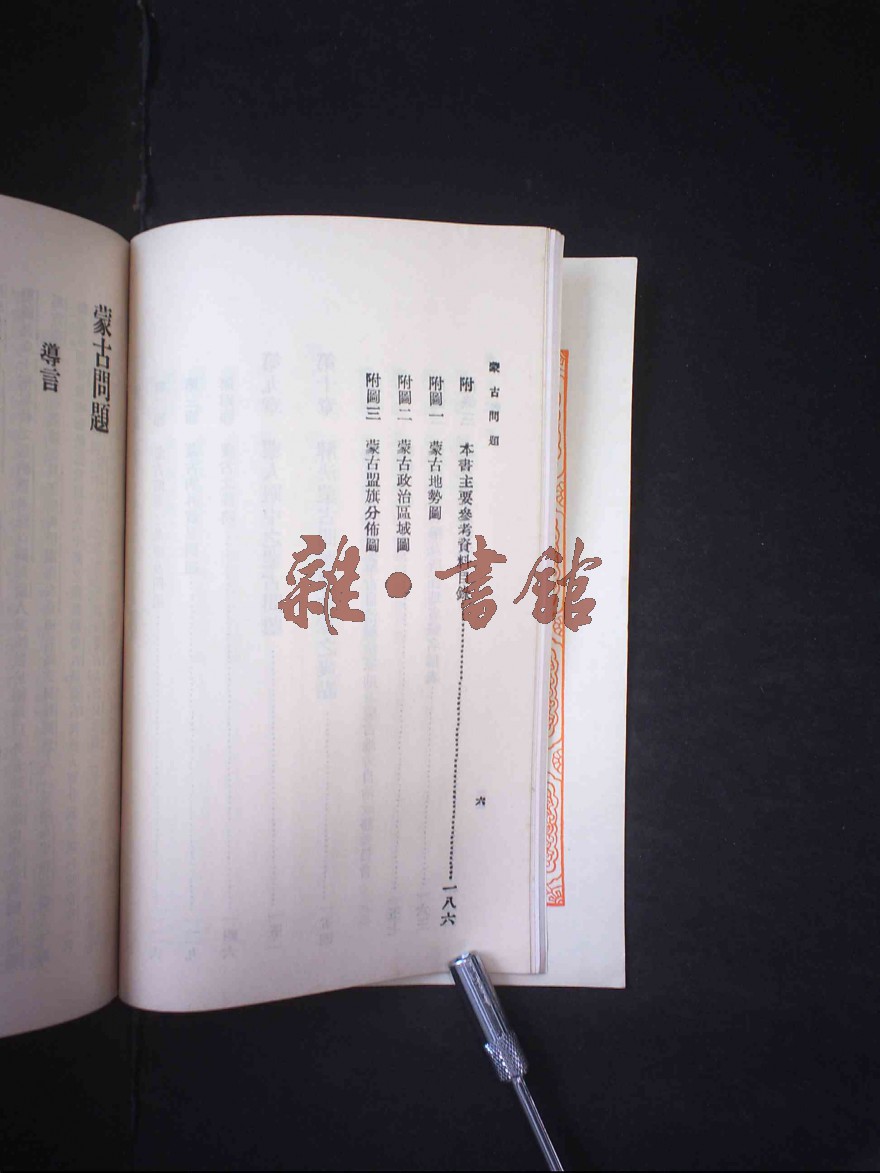 蒙古問題
附 本書主要參考資料目錄……一八六
附圖一 蒙古地勢圖
附圖二 蒙古政治區域圖
附圖三 蒙古盟旗分佈圖
六
蒙古問題
導言
雜·書館